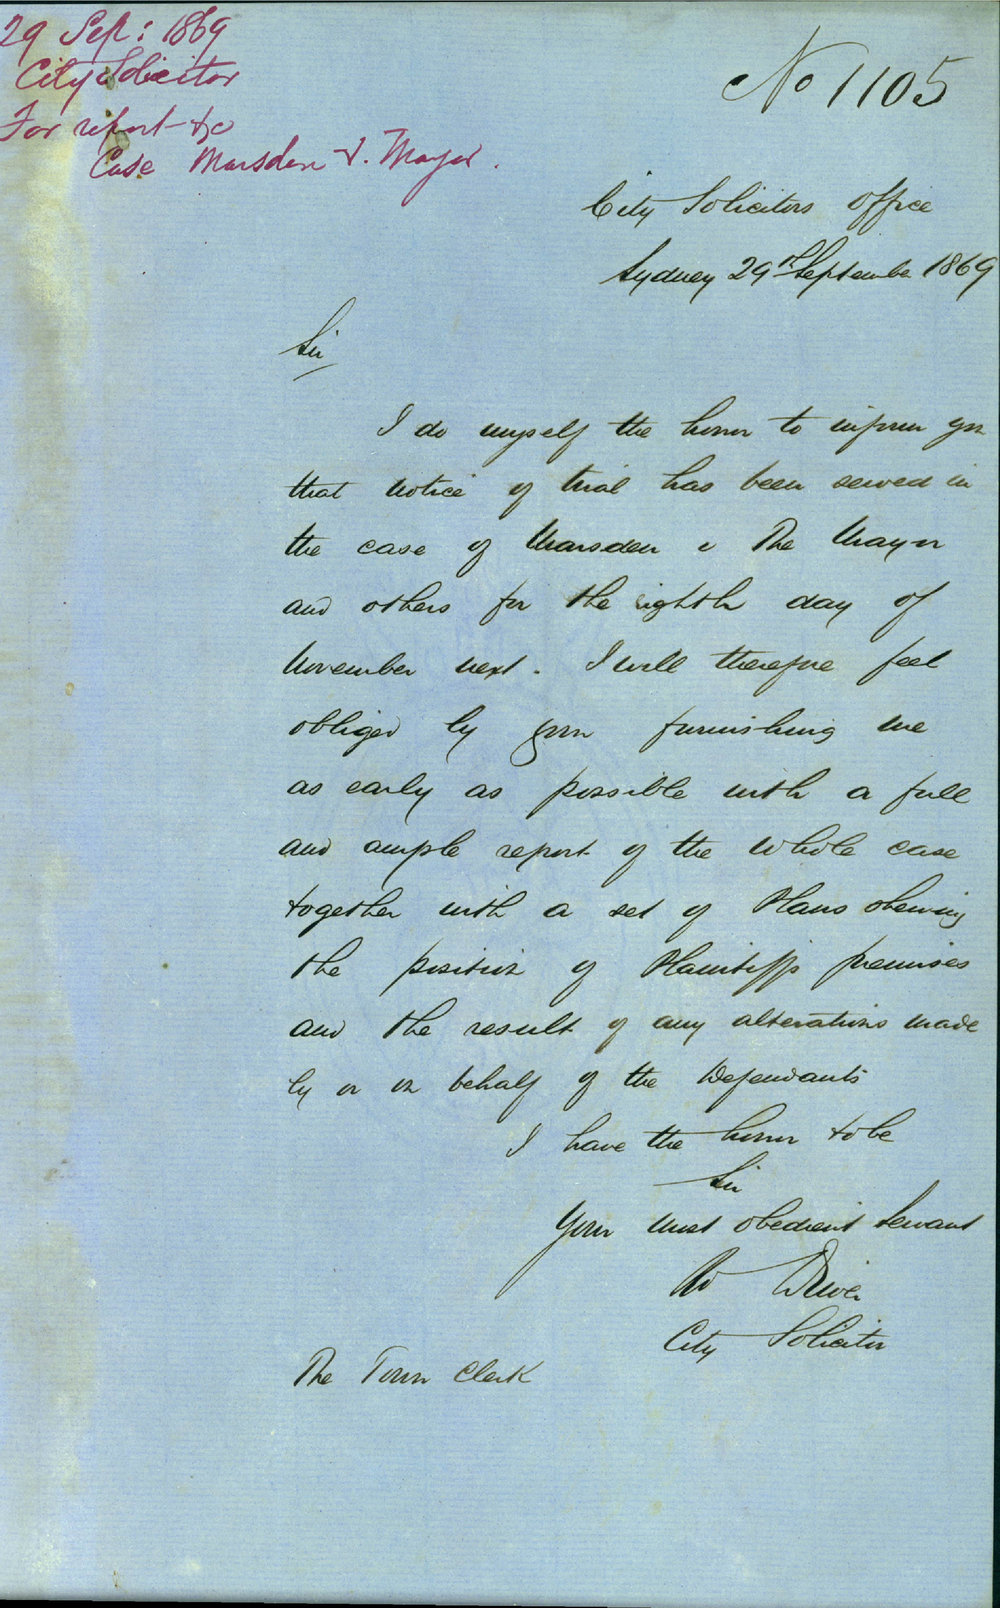 29 Sep: 1869
City Solicitor
For report &c
Case Marsden v. Mayor.
No 1105
City Solicitors Office
Sydney 29th September 1869
Sir
I do myself the honor to inform you
that notice of trial has been served in
the case of Marsden v The Mayor
and others for the eighth day of
November next. I will therefore feel
obliged by your furnishing me
as early as possible with a full
and ample report of the whole case
together with a set of Plans shewing
the position of Plaintiffs premises
and the result of any alterations made
by or on behalf of the Defendants
I have the honor to be
Sir
Your most obedient Servant
W Driver
City Solicitor
The Town Clerk